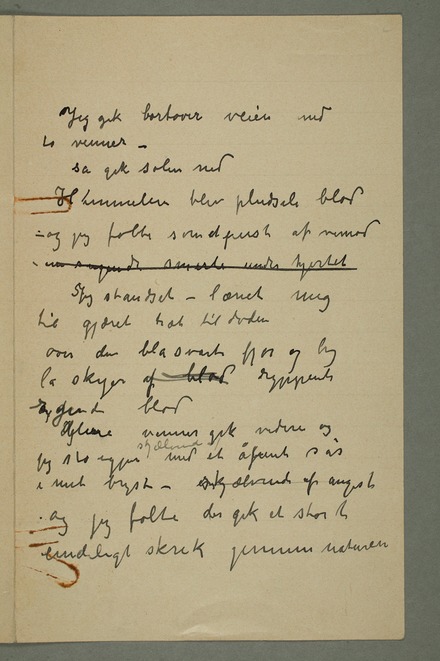 Jeg gik bortover veien med
to venner –
så gik solen ned
Himmelen blev pludseli blod
– og jeg følte som et pust af vemod
– en sugende smerte under hjertet
Jeg standset – lænet mig
til gjæret træt til døden
over den blåsvarte fjor og by
la skyer af blod dryppende
rygende blod
Mine venner gik videre og
jeg sto igjen skjælvende med et åpent sår
i mit bryst – skjælvende af angest
– og jeg følte der gik et stort
uendeligt skrik gjennem naturen